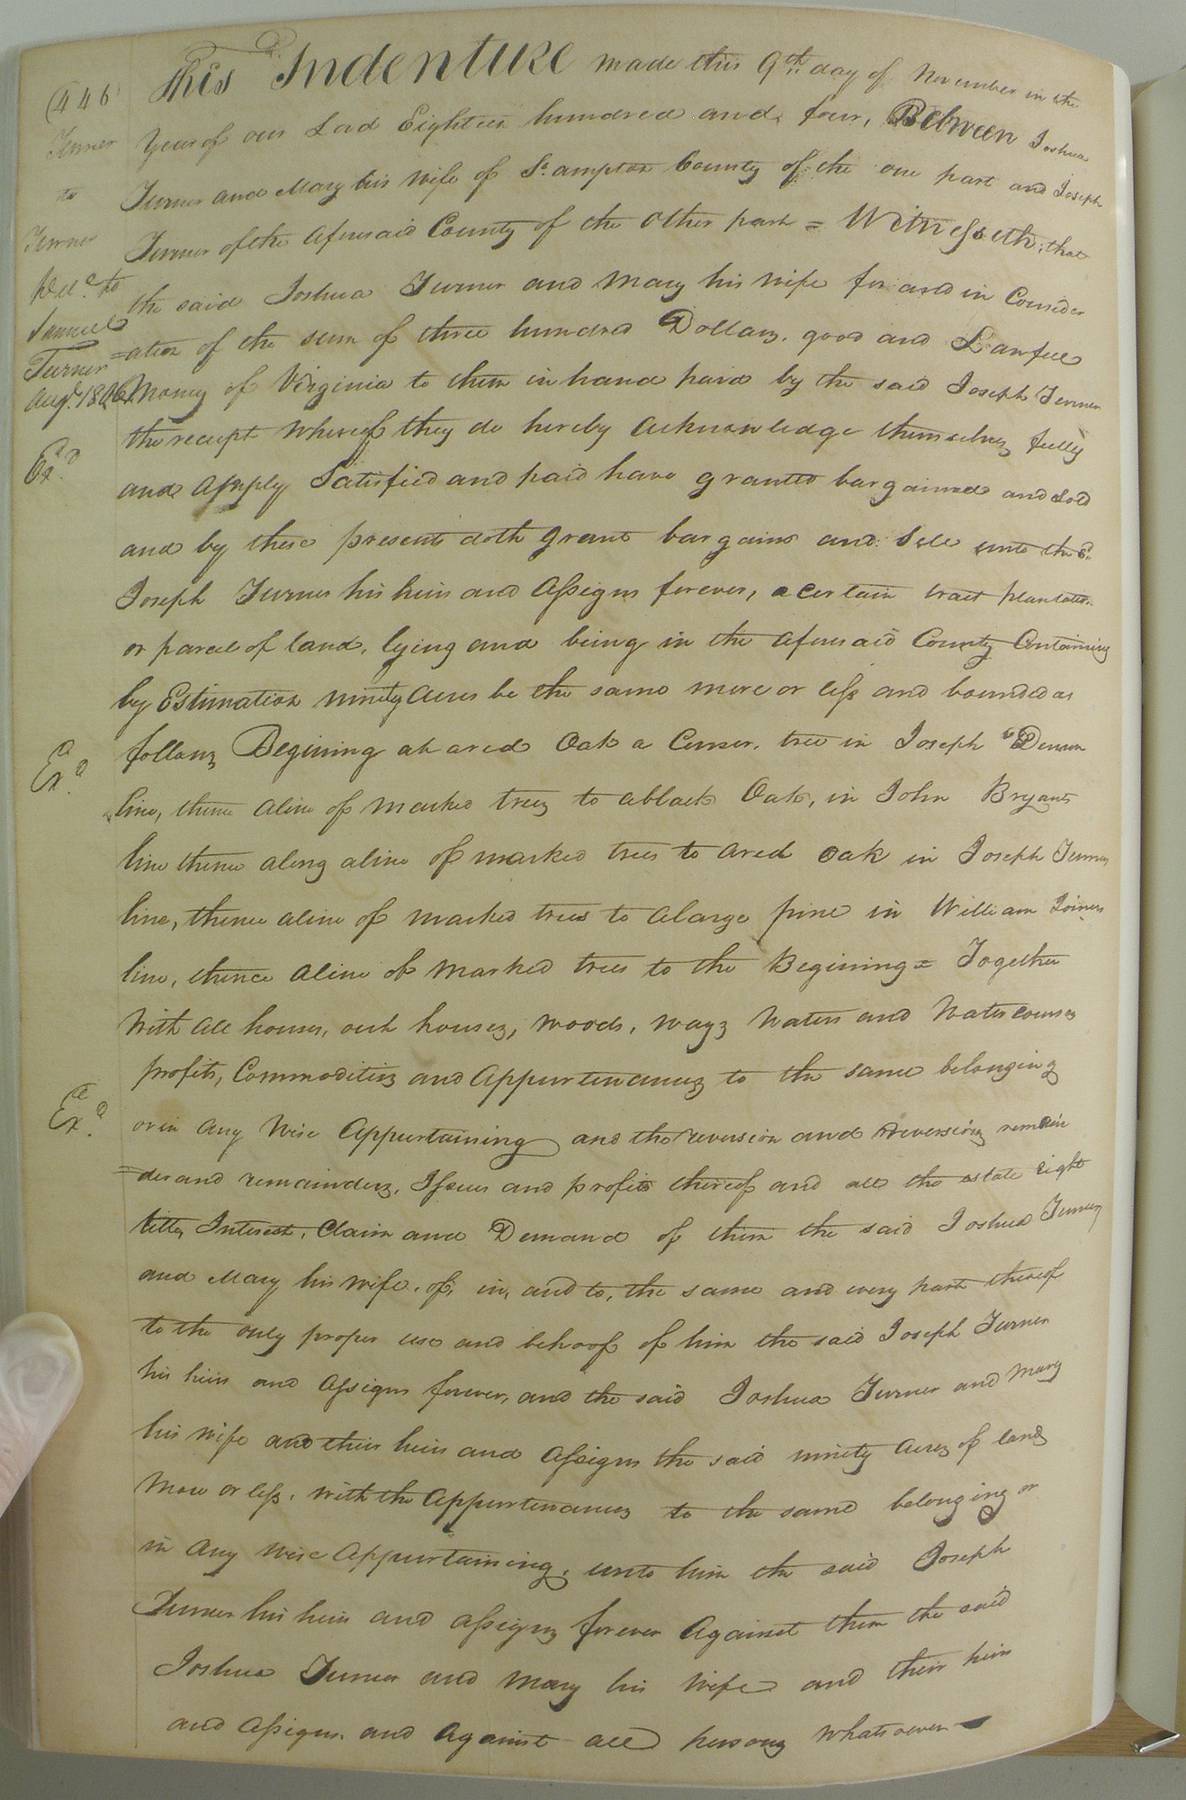 (446
Turner
to
Turner
Del.d to
Samuel
Turner
Aug.t 1806
Ex.d
Ex.d
Ex.d
This Indenture made this 9th day of November in the
Year of our Lord Eighteen hundred and four, Between Joshua
Turner and Mary his wife of So. ampton County of the one part and Joseph
Turner of the aforesaid County of the Other part = Witnesseth, that
the said Joshua Turner and Mary his wife for and in Consider
=ation of the sum of three hundred Dollars, good and Lawfull
Money of Virginia to them in hand paid by the said Joseph Turner
the receipt whereof they do hereby acknowledge themselves fully
and Amply Satisfied and paid have granted bargained and Sold
and by these presents doth grant bargains and Sell unto the sd.
Joseph Turner his heirs and Assigns forever, a certain tract plantation
or parcel of land, lying and being in the aforesaid County Containing
by Estimation ninety Acres be the same more or less and bounded as
follows Begining at a red Oak a Corner tree in Joseph Denson
line, thence a line of marked trees to a black Oak, in John Bryants
line thence along a line of marked trees to a red oak in Joseph Turners
line, thence a line of marked trees to a large pine in William Joiners
line, thence a line of marked trees to the Begining = Together
With all houses, out houses, woods, ways Waters and Water courses
profits, Commodities and Appurtenances to the same belonging
or in any wise Appurtaining and the reversion and reversions remain
=der and remainders, Issues and profits thereof and all the estate right
title, Interest, Claim and Demand of them the said Joshua Turner
and Mary his wife, of, in, and to, the same and every part thereof
to the only proper use and behoof of him the said Joseph Turner
his heirs and Assigns forever, and the said Joshua Turner and Mary
his wife and their heirs and Assigns the said ninety Acres of land
More or less, with the Appurtenances to the same belonging or
in any wise Appurtaining, unto him the said Joseph
Turner his heirs and assigns forever Against them the said
Joshua Turner and Mary his Wife and their heirs
and Assigns and Against all persons whatsoever